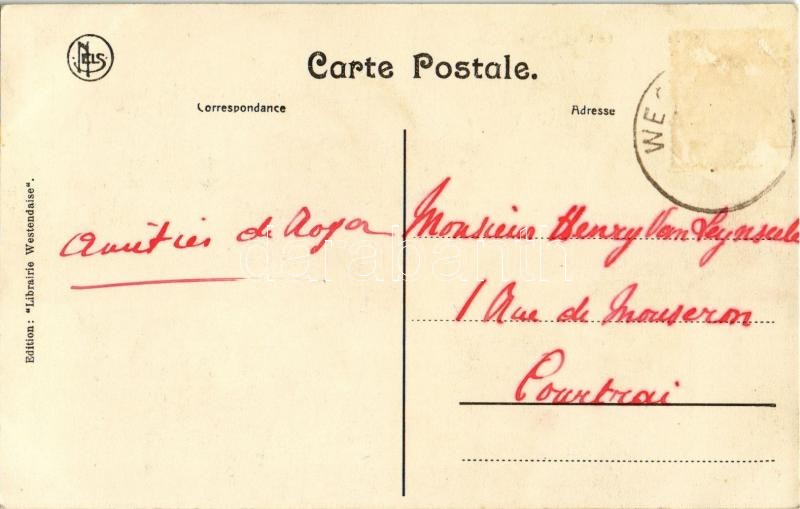 NELS
Carte Postale.
Correspondance
Adresse
WE
Edition: "Librairie Westendaise".
Amitiés de Roger
Monsieur Henry Van
1 Rue de Mouscron
Courtrai
darabanth